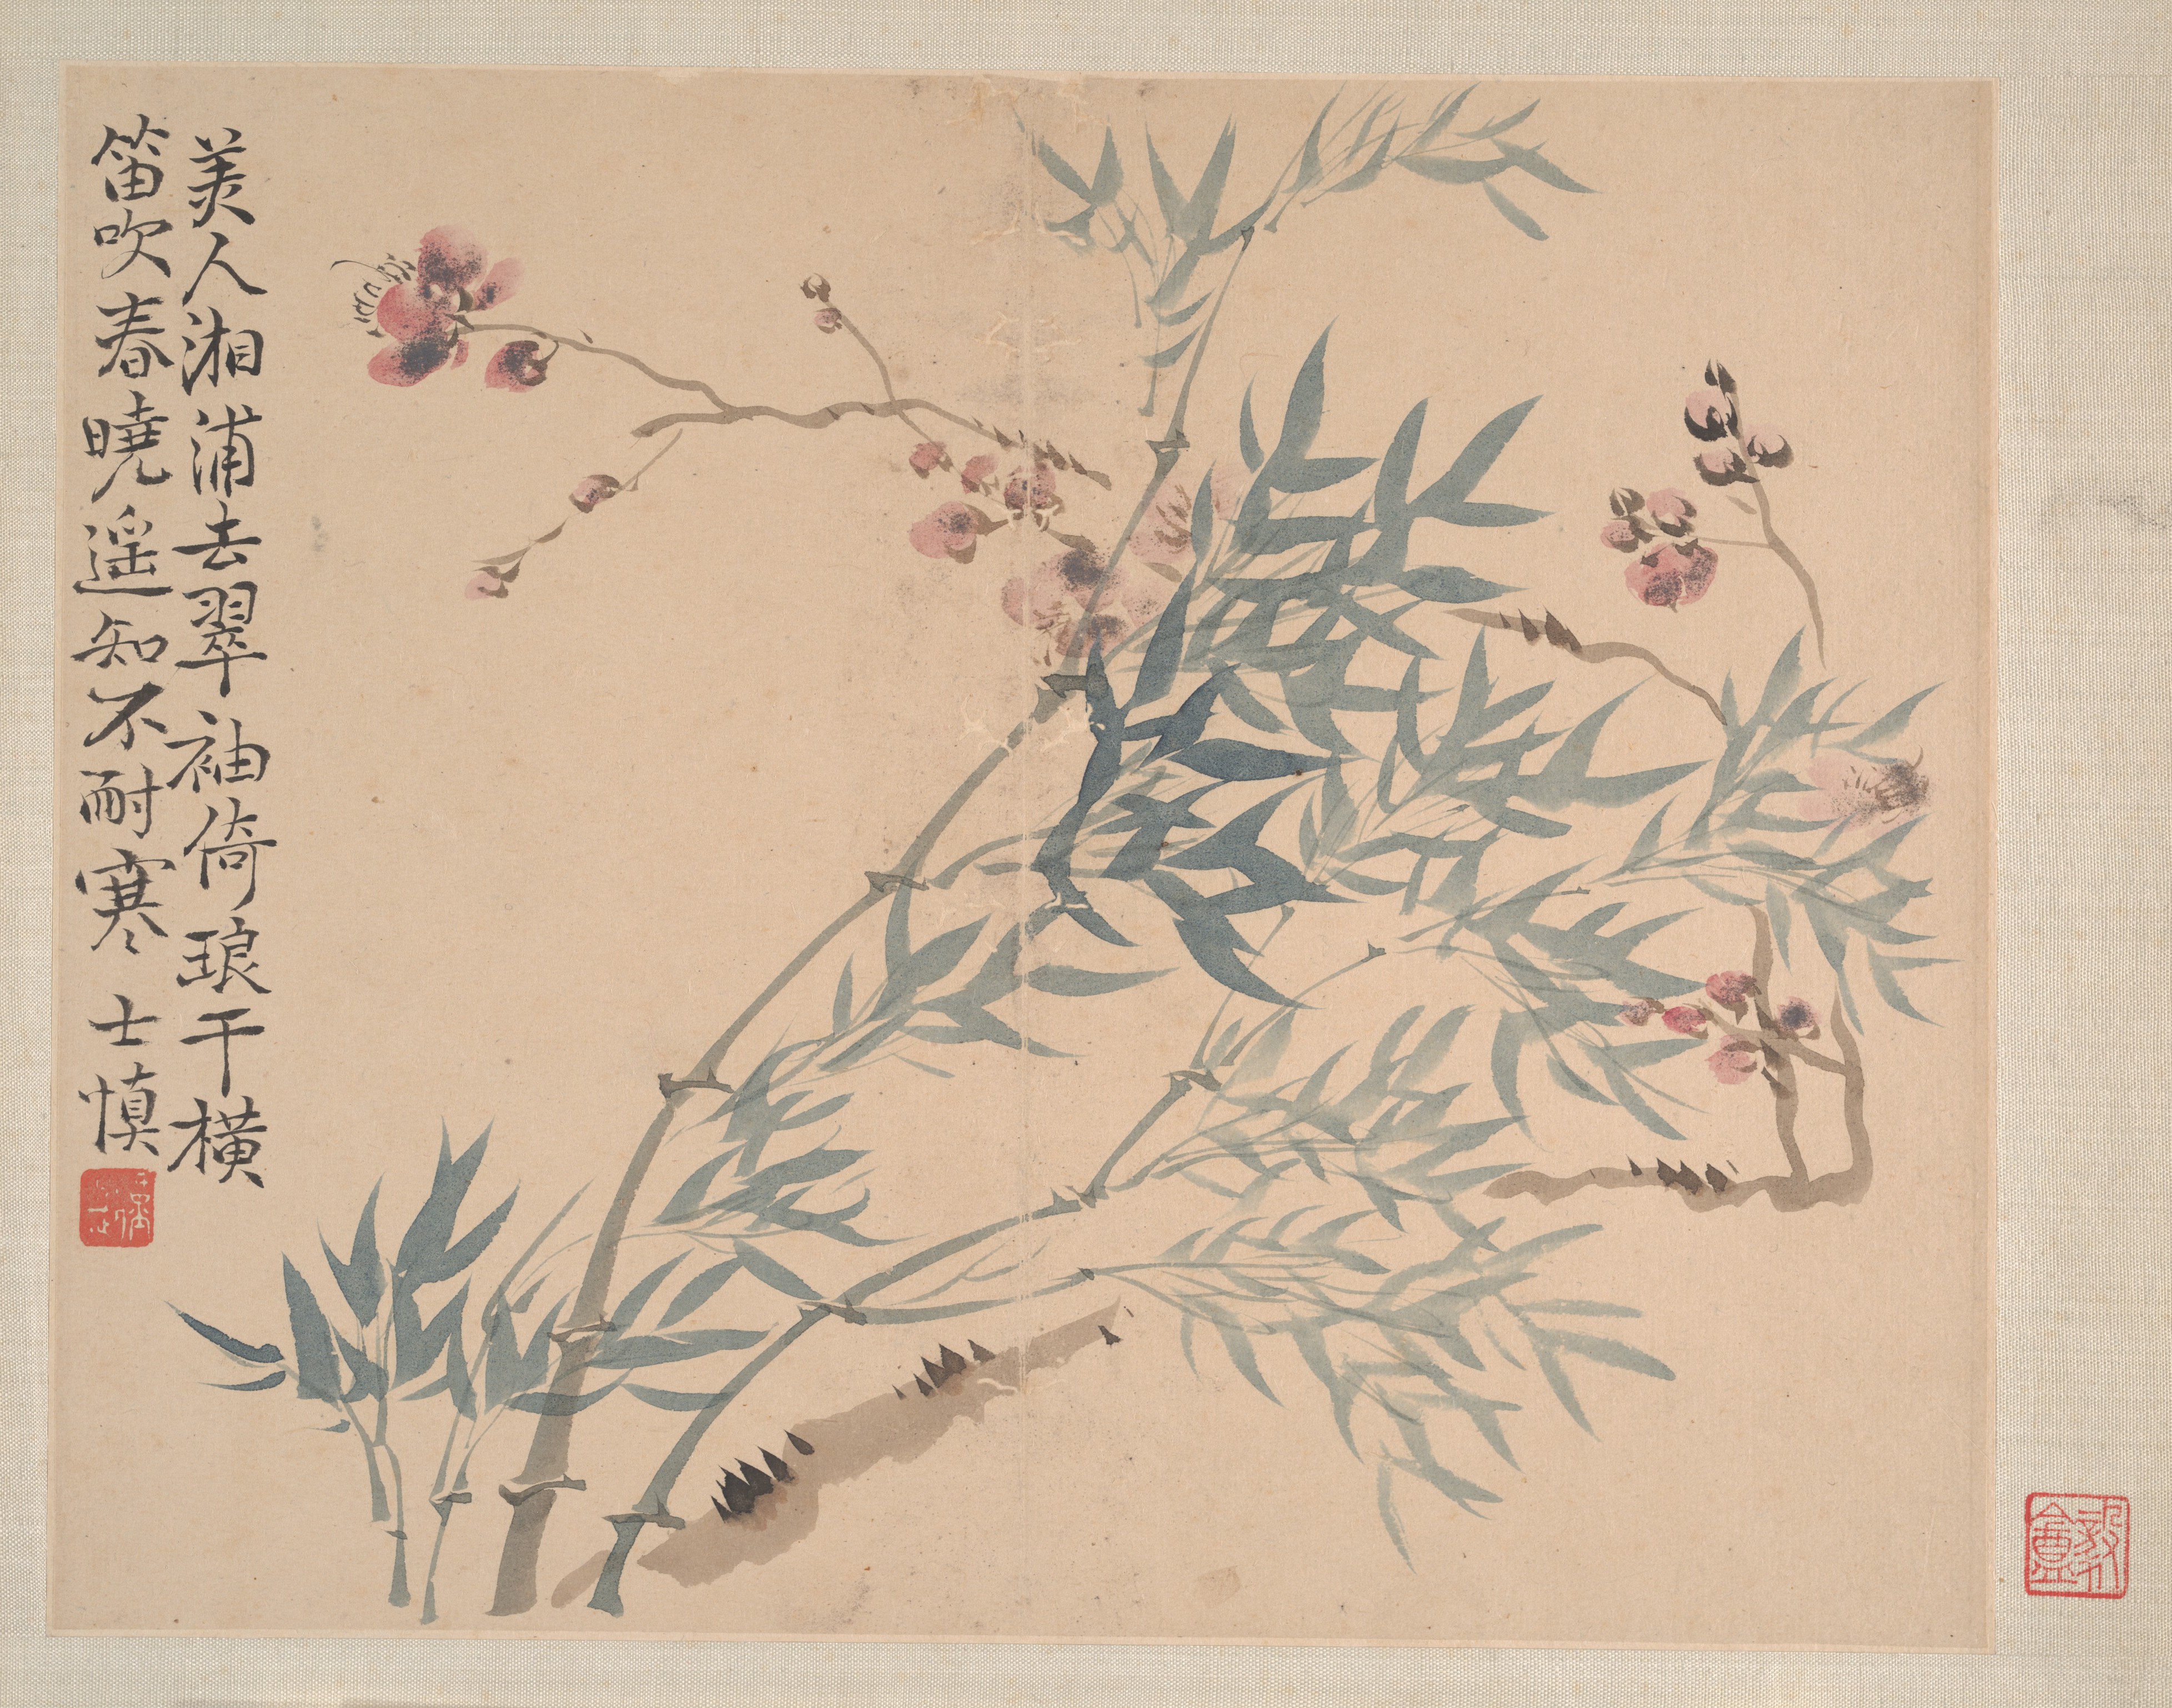 美人湘浦去翠袖倚琅干橫
笛吹春曉遥知不耐寒 士慎